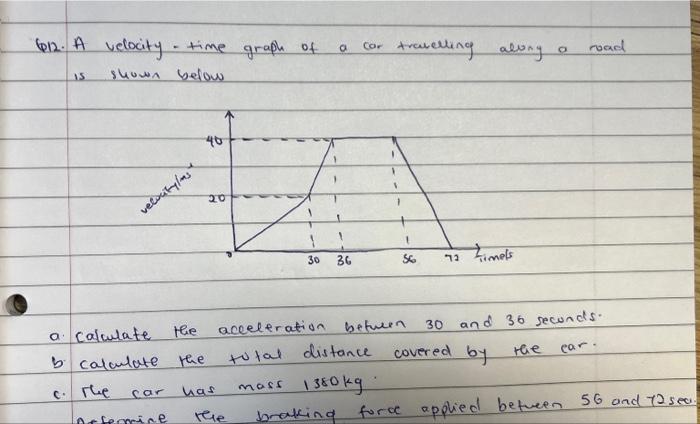 Q12. A velocity - time graph of a car travelling along a road
is shown below
40
velocity/ms⁻¹
20
0
30 36 56 72 Time/s
a. Calculate the acceleration between 30 and 36 seconds.
b. calculate the total distance covered by the car.
c. The car has mass 1380kg.
Determine the braking force applied between 56 and 72 sec.